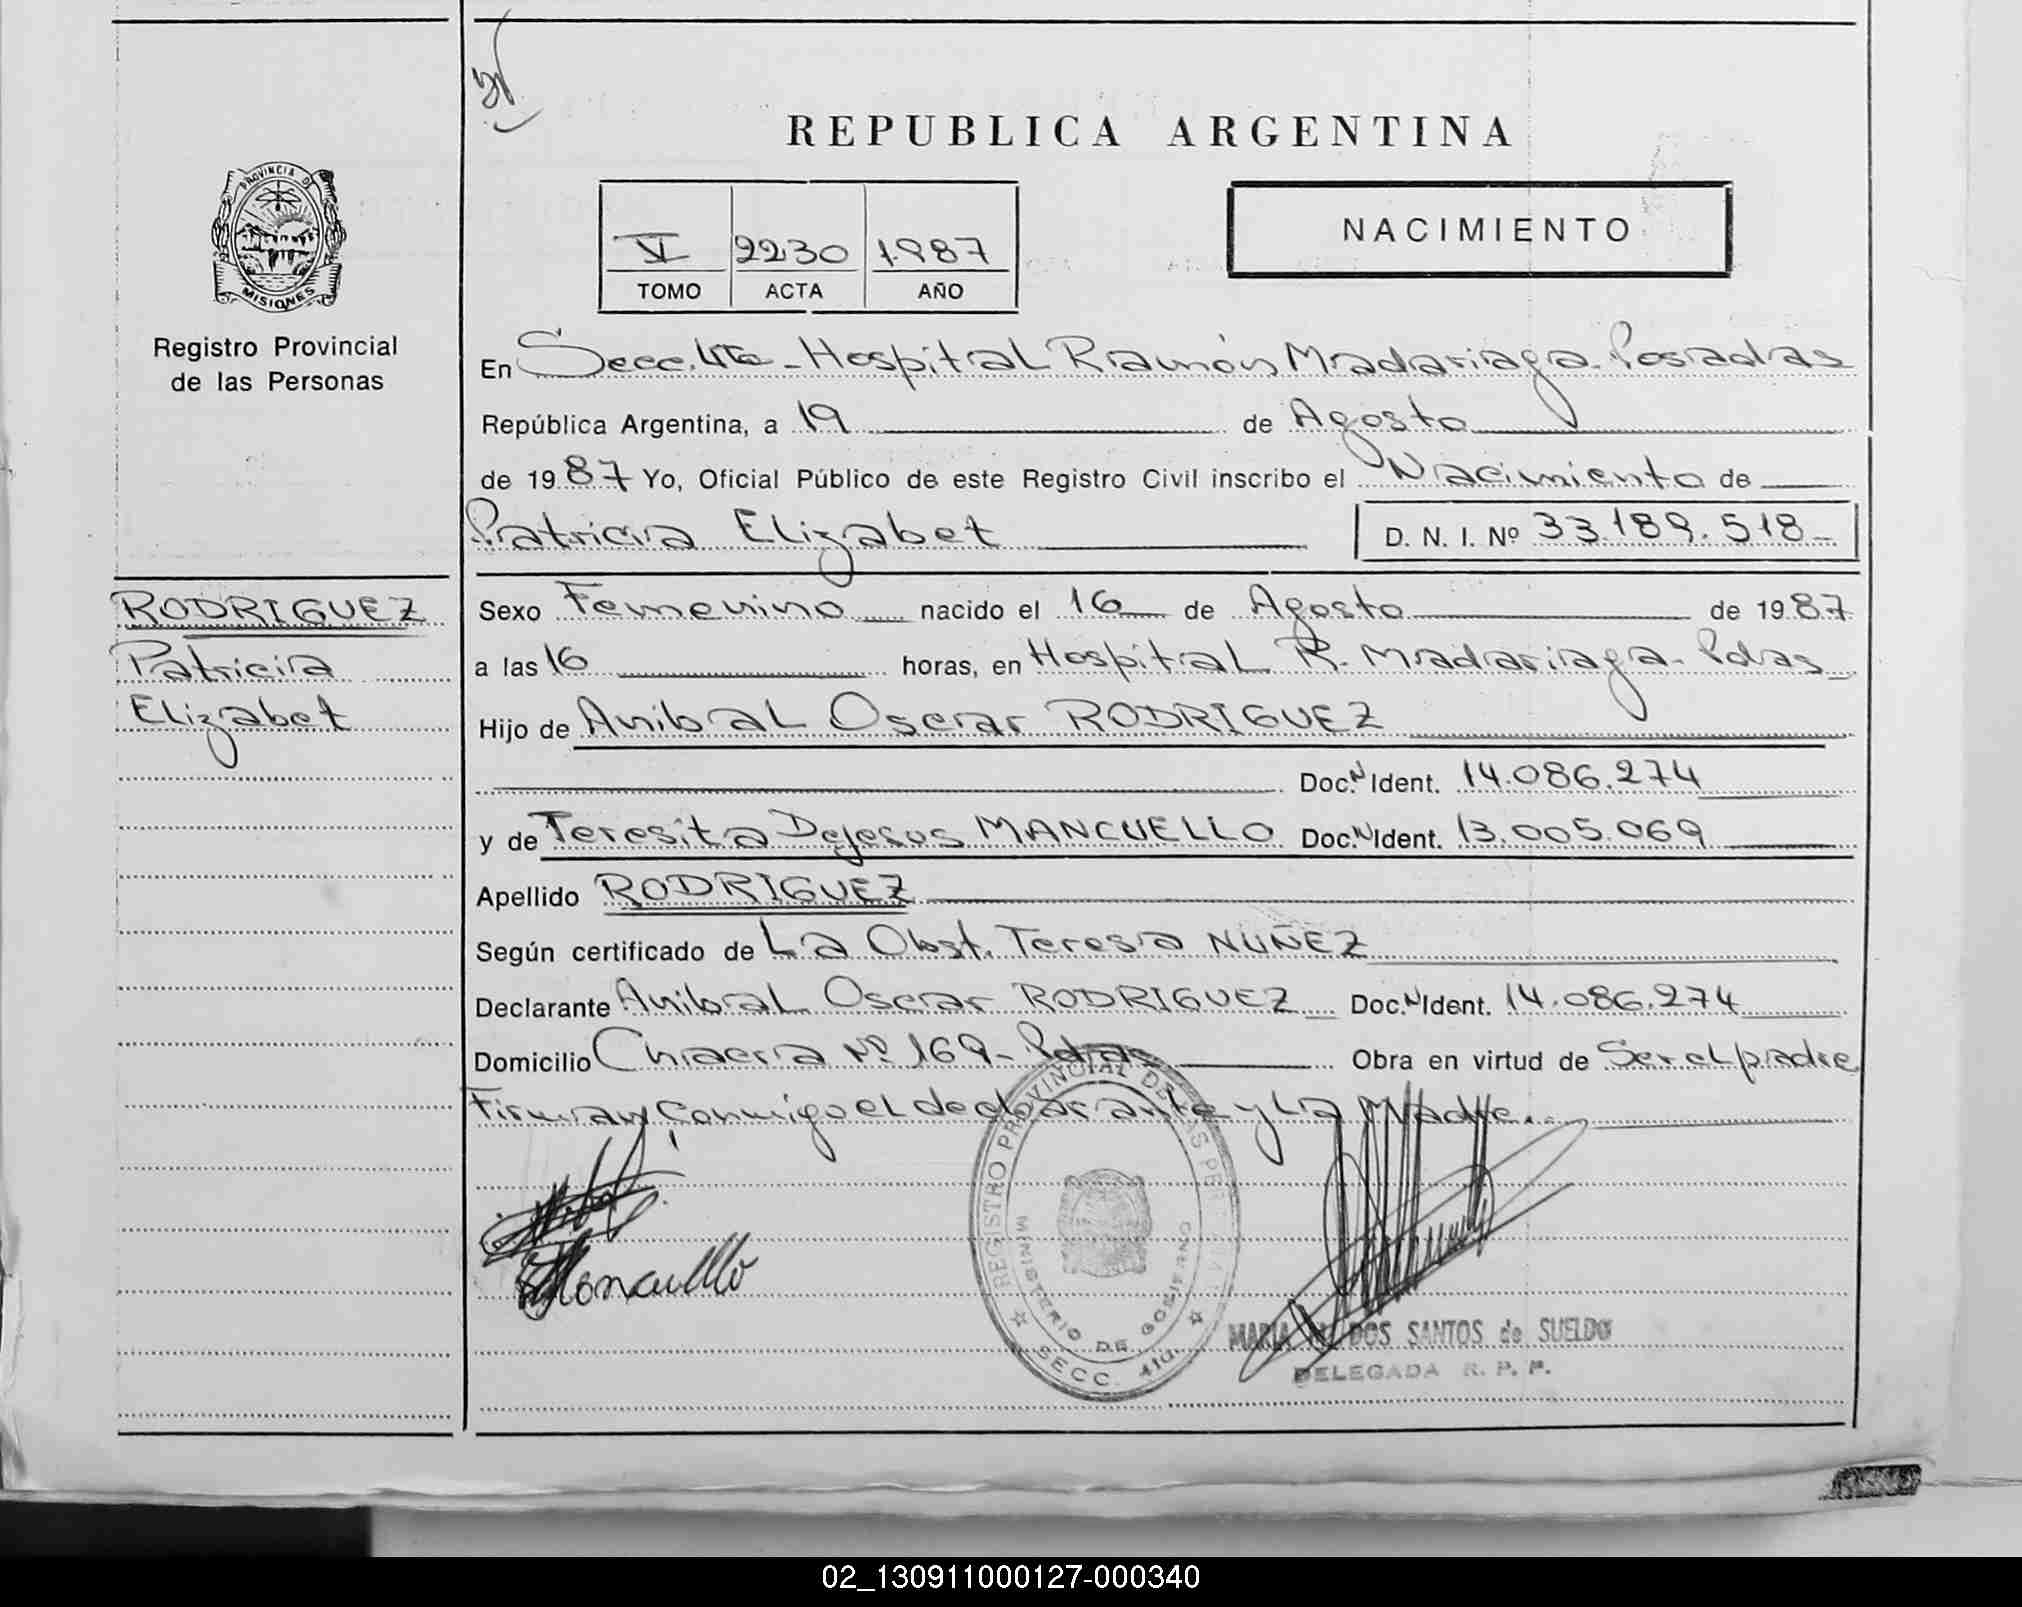 REPUBLICA ARGENTINA
PROVINCIA D
MISIONES
Registro Provincial
de las Personas
VI 2230 1.987
TOMO ACTA AÑO
NACIMIENTO
En Secc. 4ta - Hospital Ramón Madariaga - Posadas
República Argentina, a 19 de Agosto
de 1987 Yo, Oficial Público de este Registro Civil inscribo el Nacimiento de
Patricia Elizabet D. N. I. Nº 33.189.518-
RODRIGUEZ
Patricia
Elizabet
Sexo Femenino nacido el 16 de Agosto de 1987
a las 16 horas, en Hospital R. Madariaga - Pdas
Hijo de Anibal Oscar RODRIGUEZ
Doc. N Ident. 14.086.274
y de Teresita Dejesus MANCUELLO Doc. N Ident. 13.005.069
Apellido RODRIGUEZ
Según certificado de La Obst. Teresa NUÑEZ
Declarante Anibal Oscar RODRIGUEZ Doc. N Ident. 14.086.274
Domicilio Chacra Nº 169 - Pdas Obra en virtud de Ser el padre
Firman conmigo el declarante y la Madre.
Mancuello
REGISTRO PROVINCIAL DE LAS PERSONAS
MINISTERIO DE GOBIERNO
SECC. 4ta.
MARIA DOS SANTOS de SUELDO
DELEGADA R. P. P.
02_130911000127-000340